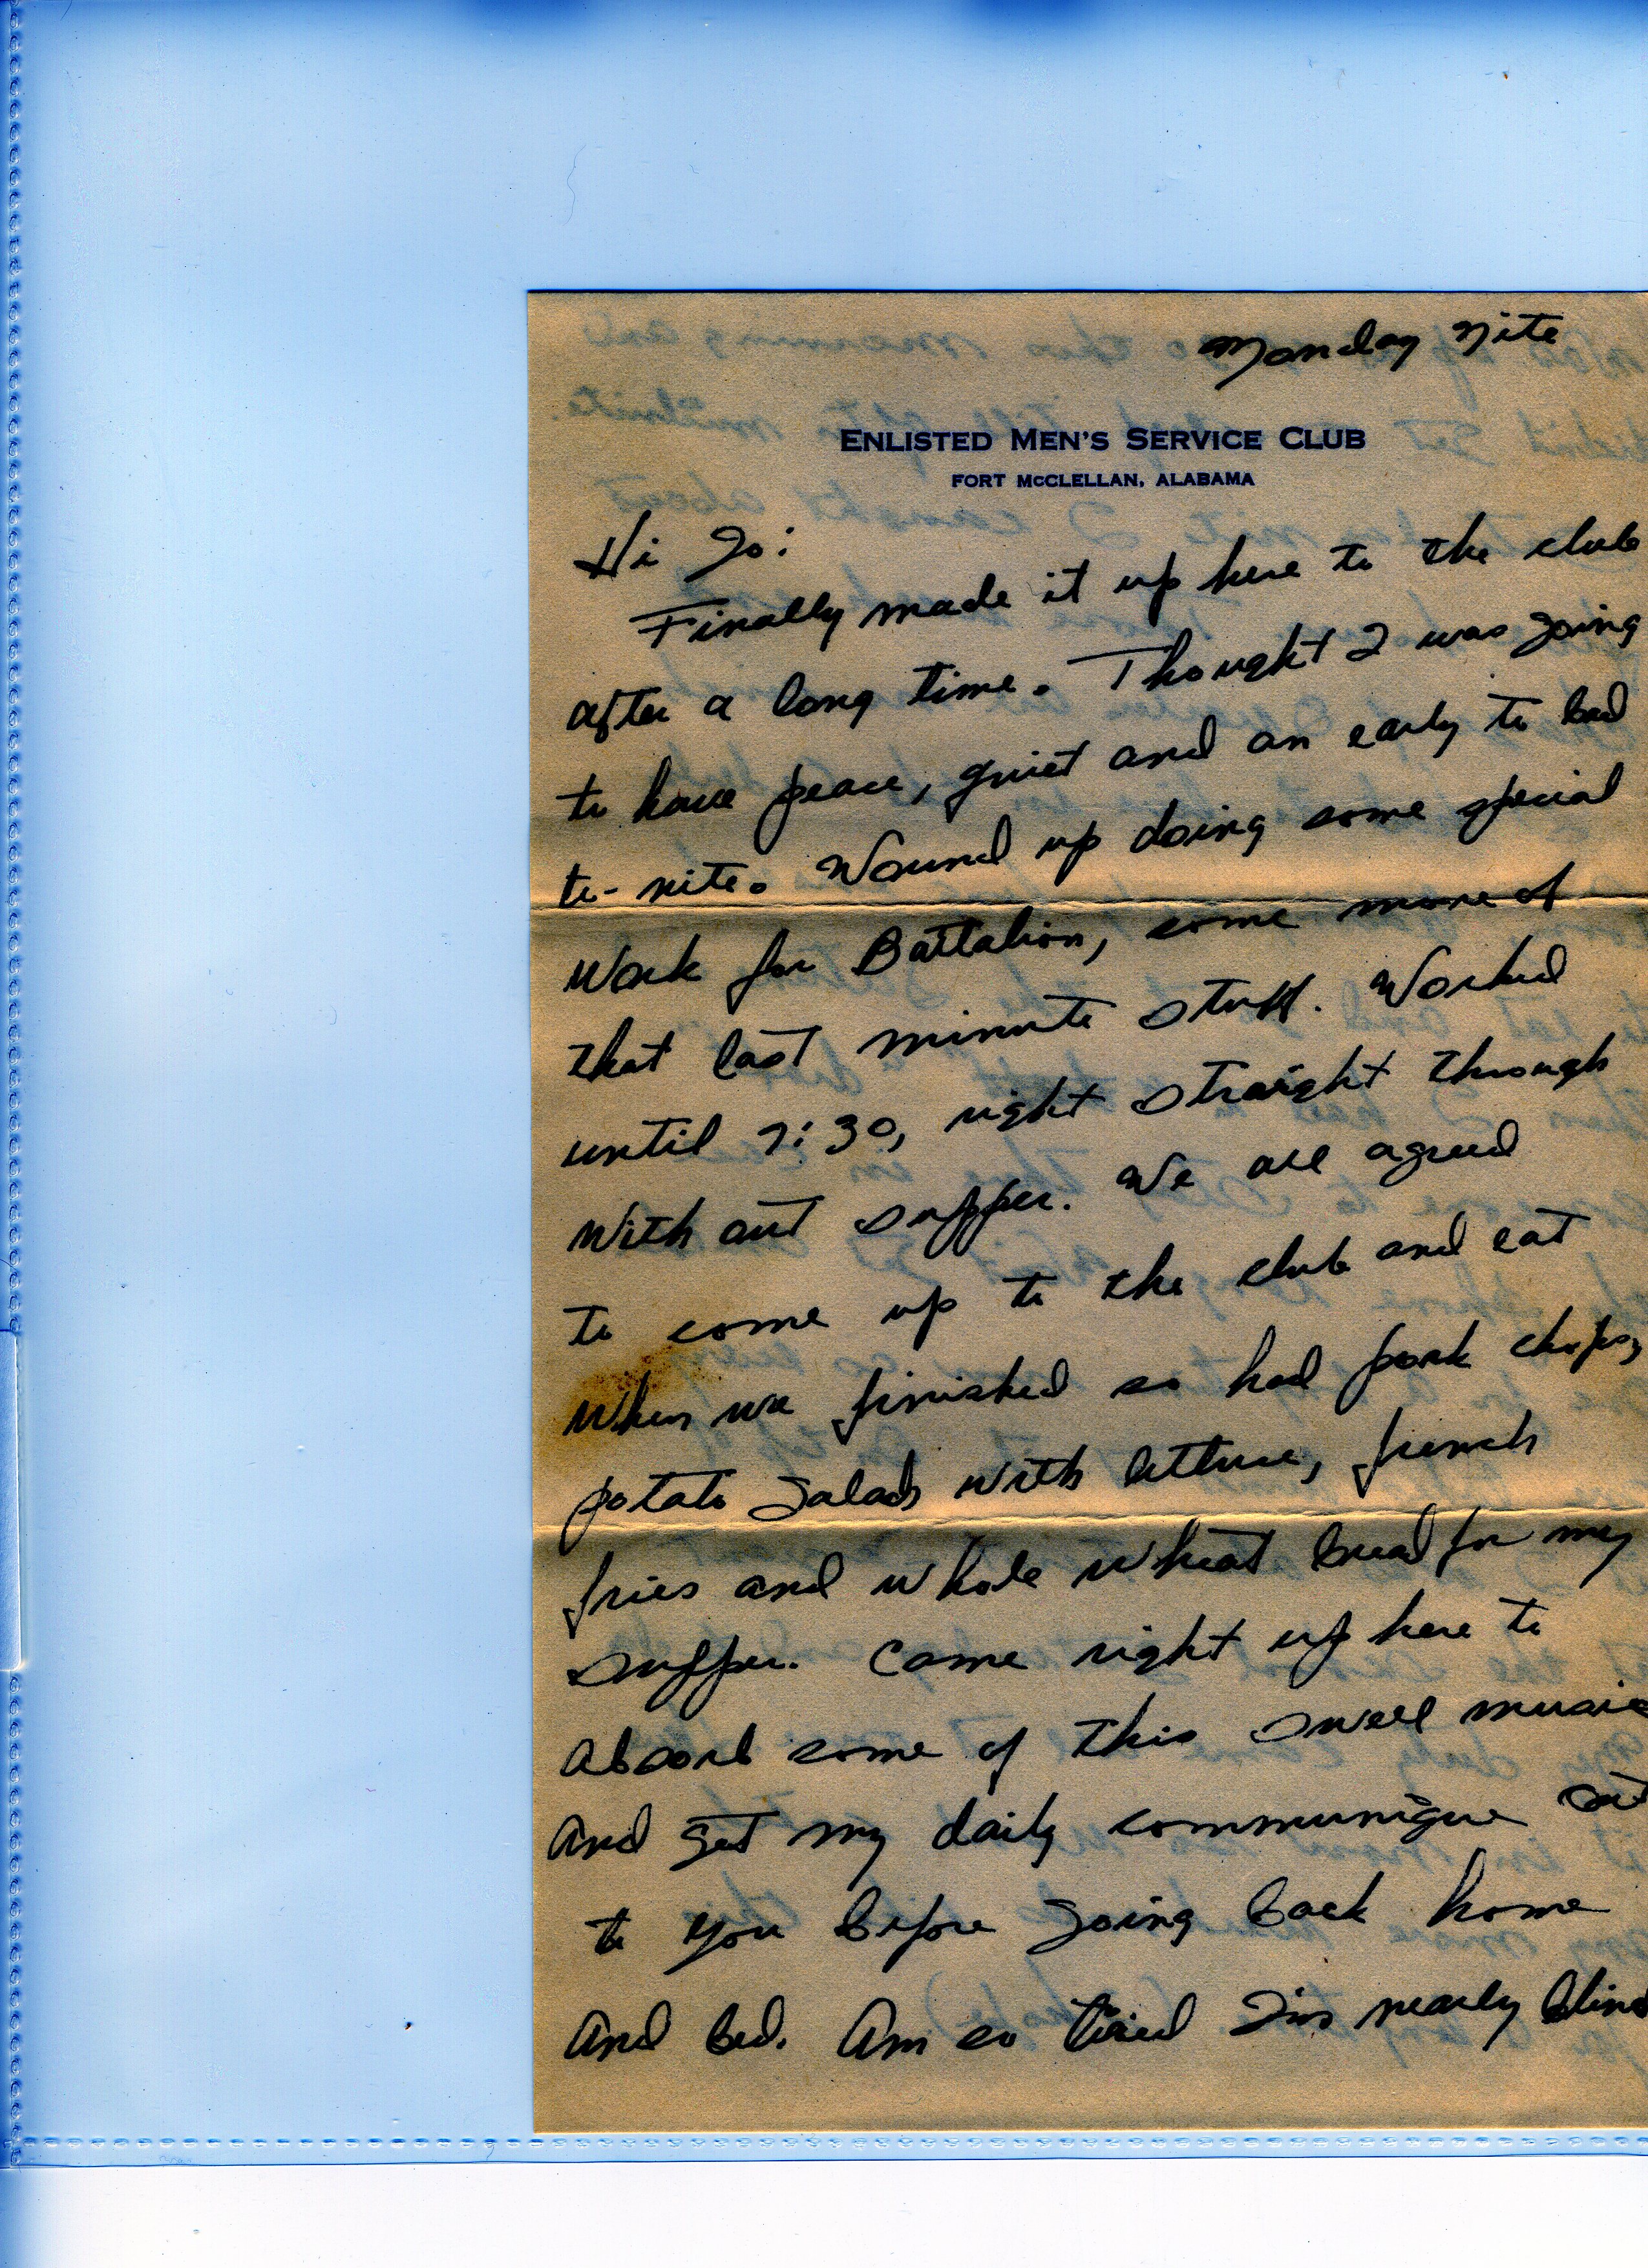 Monday Nite
ENLISTED MEN'S SERVICE CLUB
FORT McCLELLAN, ALABAMA
Hi Jo:
Finally made it up here to the club
after a long time. Thought I was going
to have peace, quiet and an early to bed
to-nite. Wound up doing some special
work for Battalion, some more of
that last minute stuff. Worked
until 7:30, right straight through
with out supper. We all agreed
to come up to the club and eat
when we finished so had pork chops,
potato salad with lettuce, french
fries and whole wheat bread for my
supper. Came right up here to
absorb some of this swell music
and get my daily communique out
to you before going back home
and bed. Am so tired I'm nearly blind